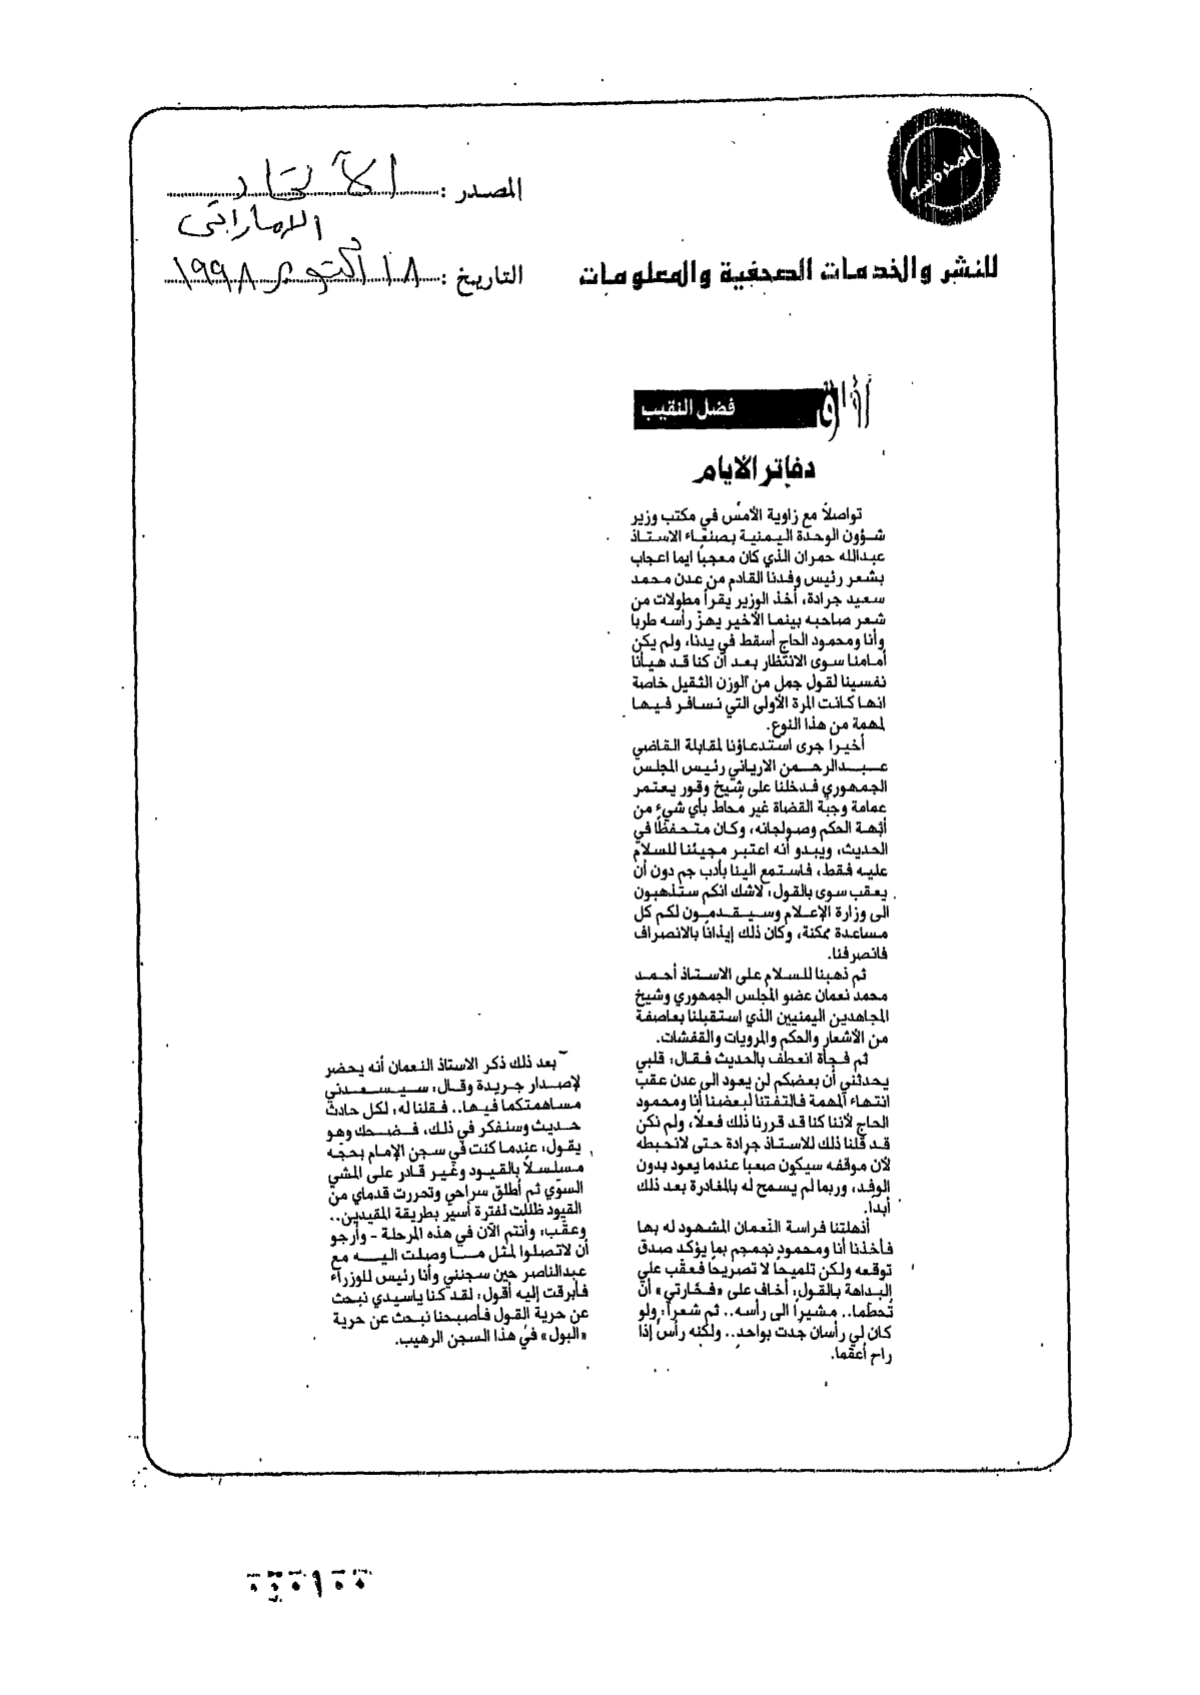 المحروسه
المصدر : الاتحاد
الاماراتى
للنشر والخدمات الصحفية والمعلومات
التاريخ : ١٨ اكتوبر ١٩٩٨
آفاق
فضل النقيب
دفاتر الايام
تواصلاً مع زاوية الأمس في مكتب وزير
شؤون الوحدة اليمنية بصنعاء الاستاذ
عبدالله حمران الذي كان معجباً ايما اعجاب
بشعر رئيس وفدنا القادم من عدن محمد
سعيد جرادة، أخذ الوزير يقرأ مطولات من
شعر صاحبه بينما الأخير يهزّ رأسه طربا
وأنا ومحمود الحاج أسقط في يدنا، ولم يكن
أمامنا سوى الانتظار بعد أن كنا قد هيأنا
نفسينا لقول جمل من الوزن الثقيل خاصة
انها كانت المرة الأولى التي نسافر فيها
لمهمة من هذا النوع.
أخيرا جرى استدعاؤنا لمقابلة القاضي
عبدالرحمن الارياني رئيس المجلس
الجمهوري فدخلنا على شيخ وقور يعتمر
عمامة وجبة القضاة غير مُحاط بأي شيء من
أبّهة الحكم وصولجانه، وكان متحفظاً في
الحديث، ويبدو أنه اعتبر مجيئنا للسلام
عليه فقط، فاستمع الينا بأدب جم دون أن
يعقب سوى بالقول: لاشك انكم ستذهبون
الى وزارة الإعلام وسيقدمون لكم كل
مساعدة ممكنة، وكان ذلك إيذانا بالانصراف
فانصرفنا.
ثم ذهبنا للسلام على الاستاذ أحمد
محمد نعمان عضو المجلس الجمهوري وشيخ
المجاهدين اليمنيين الذي استقبلنا بعاصفة
من الأشعار والحكم والمرويات والقفشات.
ثم فجأة انعطف بالحديث فقال: قلبي
يحدثني أن بعضكم لن يعود الى عدن عقب
انتهاء المهمة فالتفتنا لبعضنا أنا ومحمود
الحاج لأننا كنا قد قررنا ذلك فعلا، ولم نكن
قد قلنا ذلك للاستاذ جرادة حتى لانحبطه
لأن موقفه سيكون صعبا عندما يعود بدون
الوفد، وربما لم يسمح له بالمغادرة بعد ذلك
أبدا.
أذهلتنا فراسة النّعمان المشهود له بها
فأخذنا أنا ومحمود نجمجم بما يؤكد صدق
توقعه ولكن تلميحاً لا تصريحاً فعقّب على
البداهة بالقول: أخاف على «فخّارتي» أن
تُحطما.. مشيراً الى رأسه.. ثم شعراً: ولو
كان لي رأسان جدت بواحد.. ولكنه رأسٌ إذا
راح أعقما.
بعد ذلك ذكر الاستاذ النعمان أنه يحضر
لإصدار جريدة وقال: سيسعدني
مساهمتكما فيها.. فقلنا له: لكل حادث
حديث وسنفكر في ذلك، فضحك وهو
يقول: عندما كنت في سجن الإمام بحجّه
مسلسلاً بالقيود وغير قادر على المشي
السوّي ثم أطلق سراحي وتحررت قدماي من
القيود ظللت لفترة أسير بطريقة المقيدين..
وعقّب: وأنتم الآن في هذه المرحلة - وأرجو
أن لاتصلوا لمثل ما وصلت اليه مع
عبدالناصر حين سجنني وأنا رئيس للوزراء
فأبرقت إليه أقول: لقد كنا ياسيدي نبحث
عن حرية القول فأصبحنا نبحث عن حرية
«البول» في هذا السجن الرهيب.